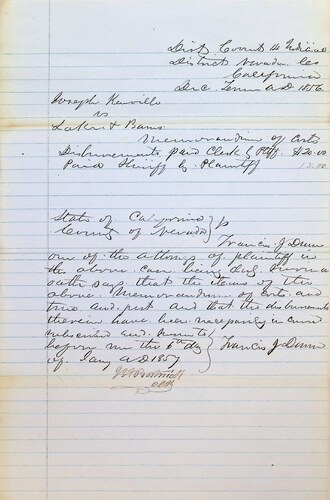 Dist. Court 14 Judicial
District Nevada Co
California
Dec Term AD 1856
Joseph
vs
&
Memorandum of Costs
Disbursements paid Clerk by Plff. $20.00
Paid Sheriff by Plaintiff
State of California } ss
County of Nevada }
Francis J Dunn
one of the attorneys of plaintiff in
the above case being duly sworn
oath says that the items of the
above Memorandum of costs are
true and just and that the disbursements
therein have been necessarily incurred
subscribed and sworn to
before me this 8th day } Francis J Dunn
of Jany AD 1857